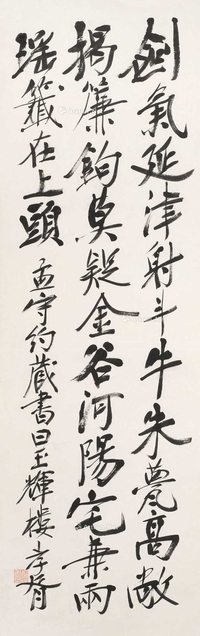 劍氣延津射斗牛朱甍高敞
揭簾鉤莫疑金谷河陽宅兼兩
瑤籤在上頭 孟守約藏書曰玉輝樓 孝胥